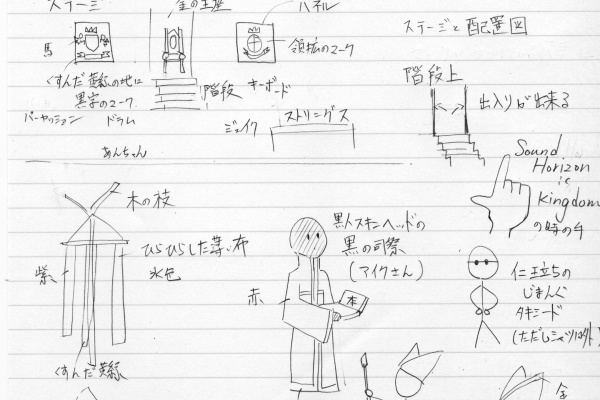 ステージ
金の玉座
パネル
ステージと配置図
馬
領拡のマーク
くすんだ黄緑の地に
黒字のマーク
階段
キーボード
階段上
出入りが出来る
パーカッション
ドラム
ジェイク
ストリングス
あんちゃん
Sound
Horizon
is
Kingdom
の時の手
木の枝
ひらひらした薄い布
水色
紫
くすんだ黄緑
黒人スキンヘッドの
黒の司祭
(アイクさん)
赤
本
仁王立ちの
じまんぐ
タキシード
(ただしシャツは外)
金